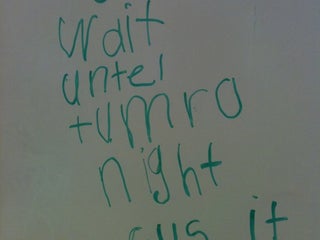 wait
untel
tumro
night
it